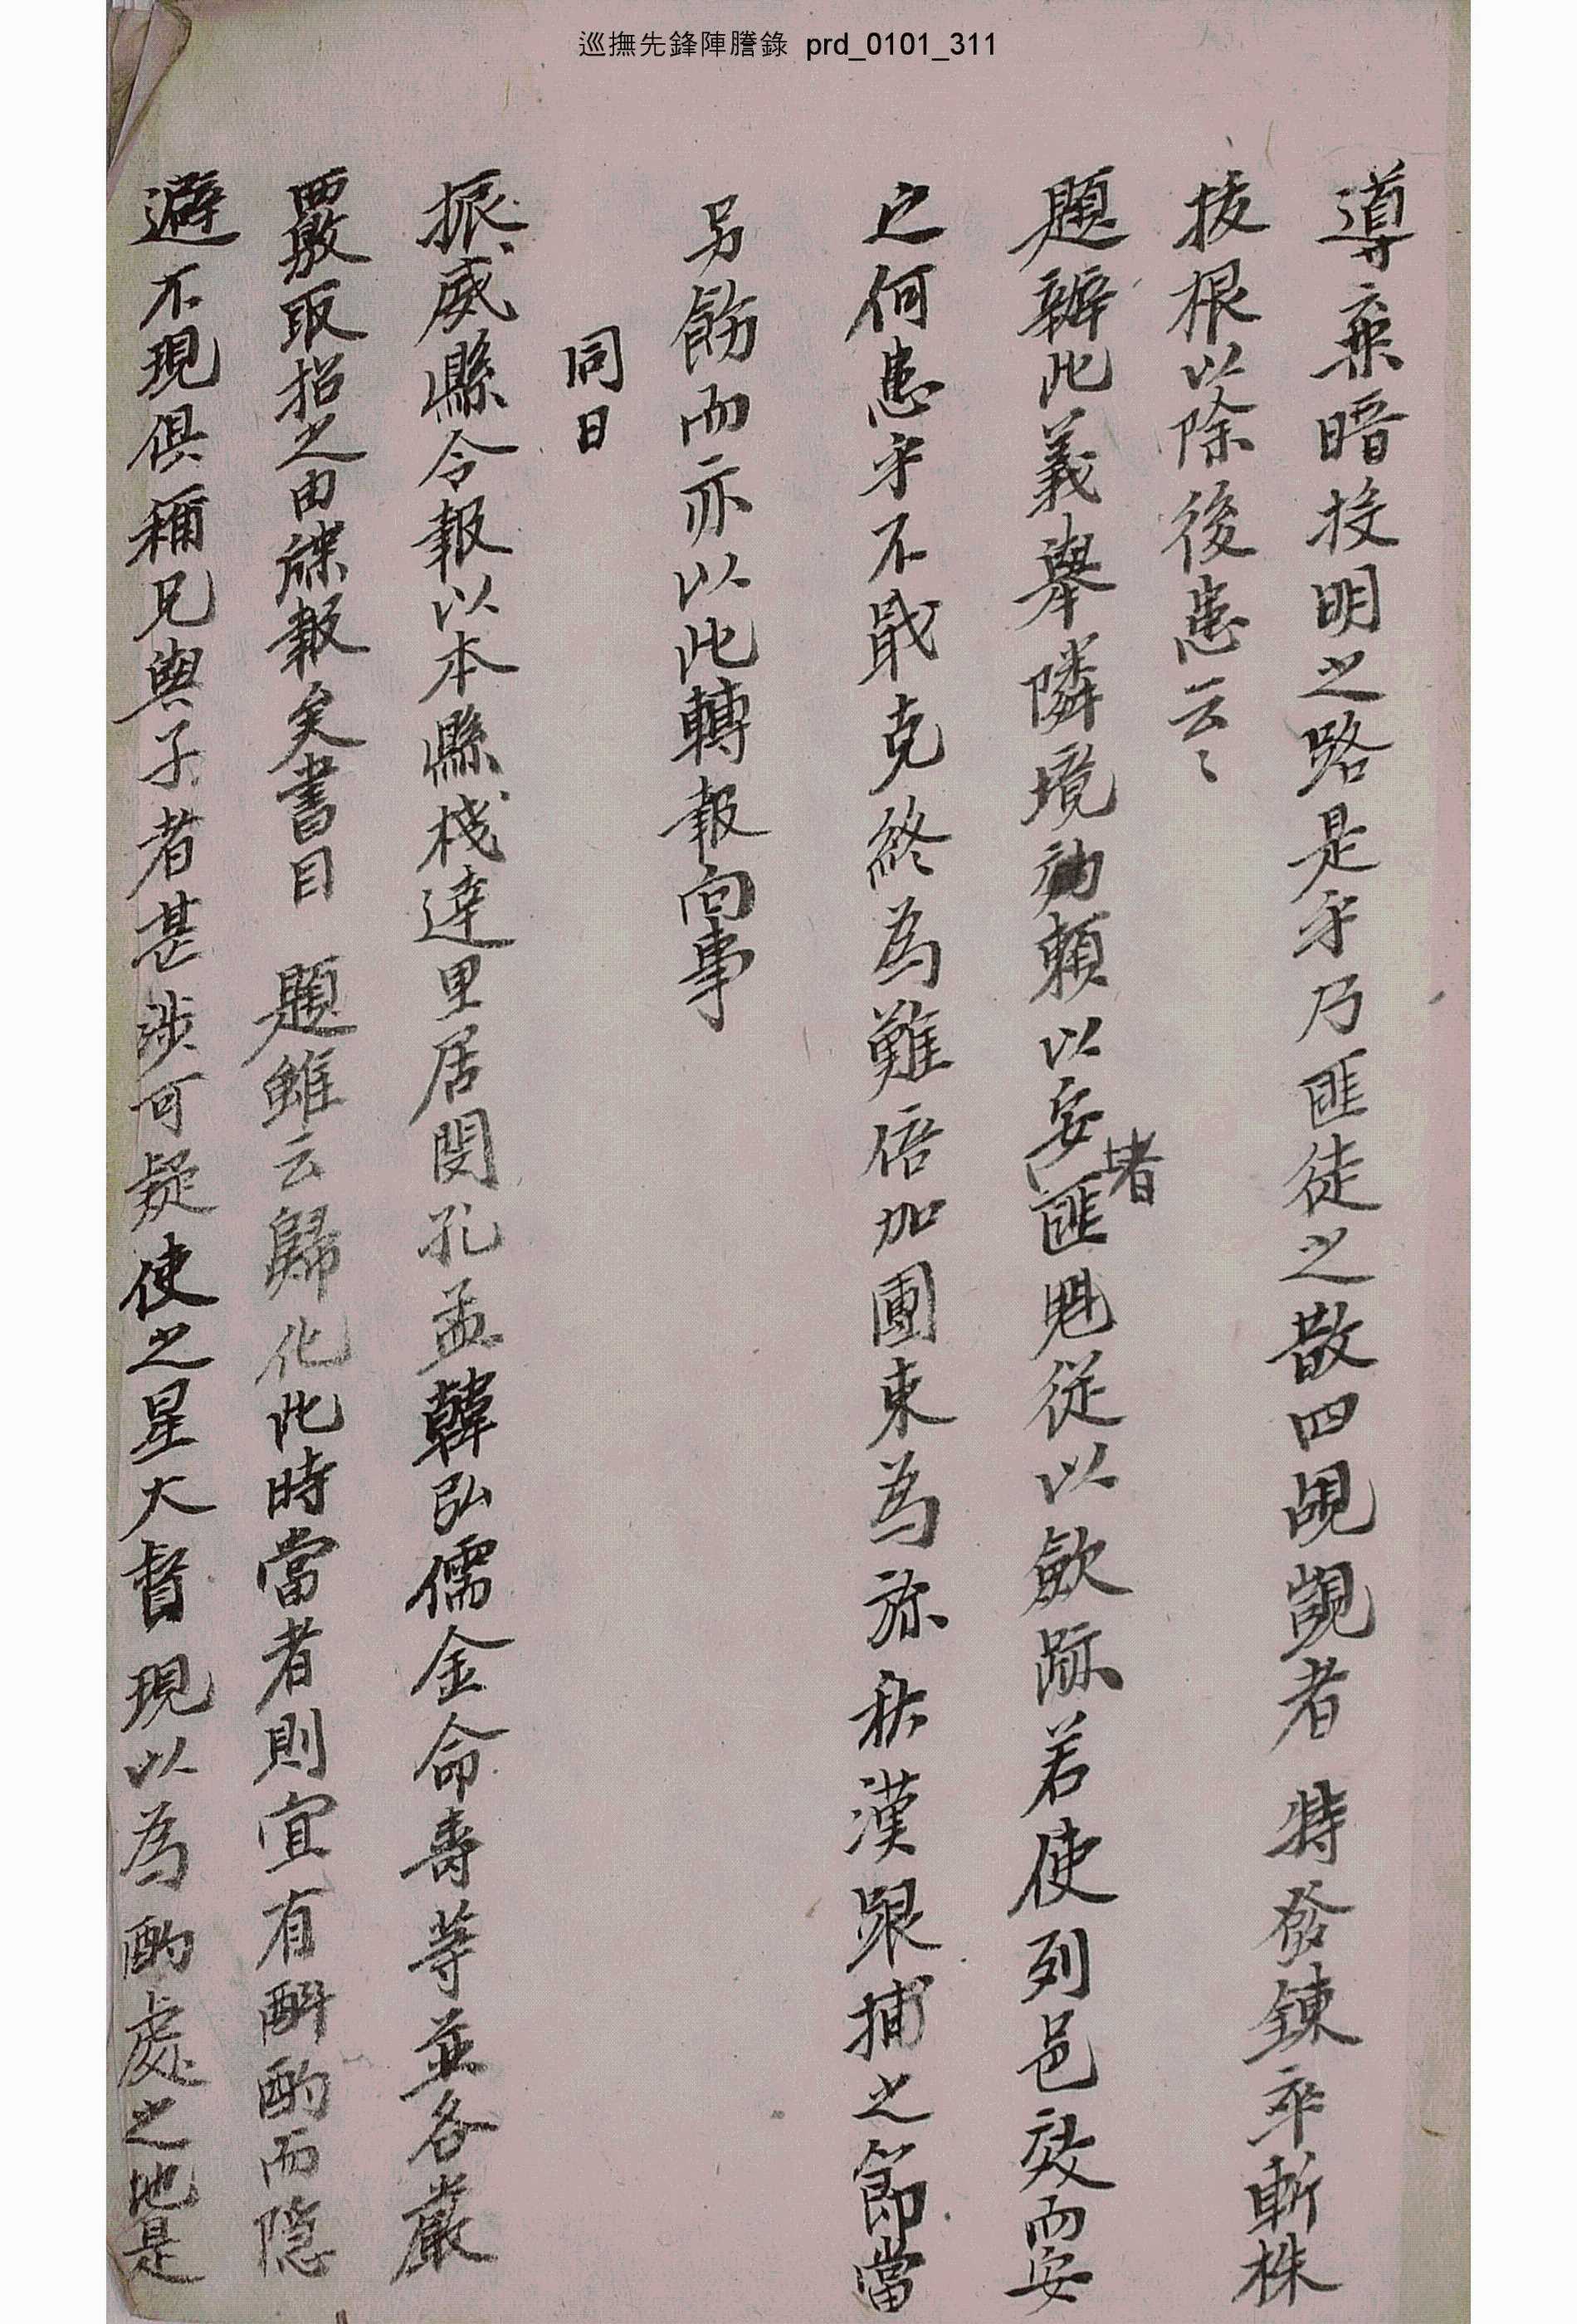 巡撫先鋒陣謄錄 prd_0101_311
導棄暗投明之路是乎乃匪徒之散四覘覬者 特發鍊卒斬株
拔根以除後患云〻
題辦此義擧隣境動賴以安堵匪魁從以歛跡若使列邑效而安
之何患乎不戢克終爲難倍加團束爲旀秋漢跟捕之節當
另飭而亦以此轉報向事
同日
振威縣令報以本縣棧達里居閔孔孟韓弘儒金命壽等並各嚴
覈取招之由牒報矣書目 題雖云歸化此時當者則宜有斟酌而隱
避不現俱稱兄與子者甚涉可疑使之星火督現以爲酌處之地是